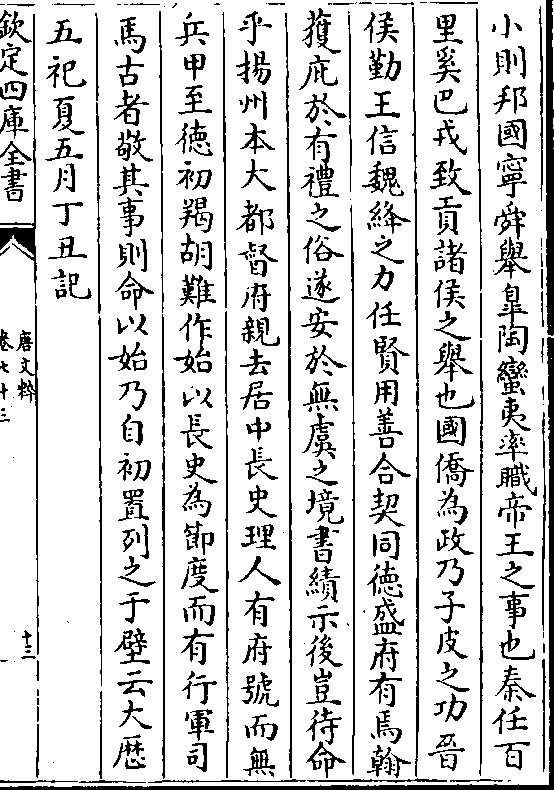 小則邦國寧舜舉臯陶蠻夷率職帝王之事也秦任百
里奚巴戎致貢諸侯之舉也國僑為政乃子皮之功晉
侯勤王信魏絳之力任賢用善合契同德盛府有焉翰
獲庇於有禮之俗遂安於無虞之境書績示後豈待命
乎揚州本大都督府親去居中長史理人有府號而無
兵甲至德初羯胡難作始以長史為節度而有行軍司
馬古者敬其事則命以始乃自初置列之于壁云大厯
五祀夏五月丁丑記
欽定四庫全書
唐文粹
卷七十三
十三